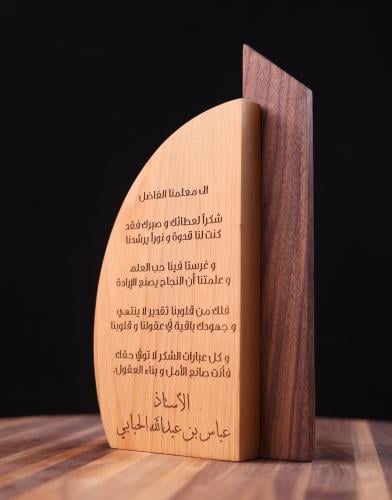 الى معلمنا الفاضل
شكراً لعطائك و صبرك فقد
كنت لنا قدوة و نوراً يرشدنا
و غرستا فينا حب العلم
و علمتنا أن النجاح يصنع الإرادة
فلك من قلوبنا تقدير لا ينتهي
و جهودك باقية في عقولنا و قلوبنا
و كل عبارات الشكر لا توفي حقك
فأنت صانع الأمل و بناء العقول.
الأستاذ
عباس بن عبدالله الحبابي